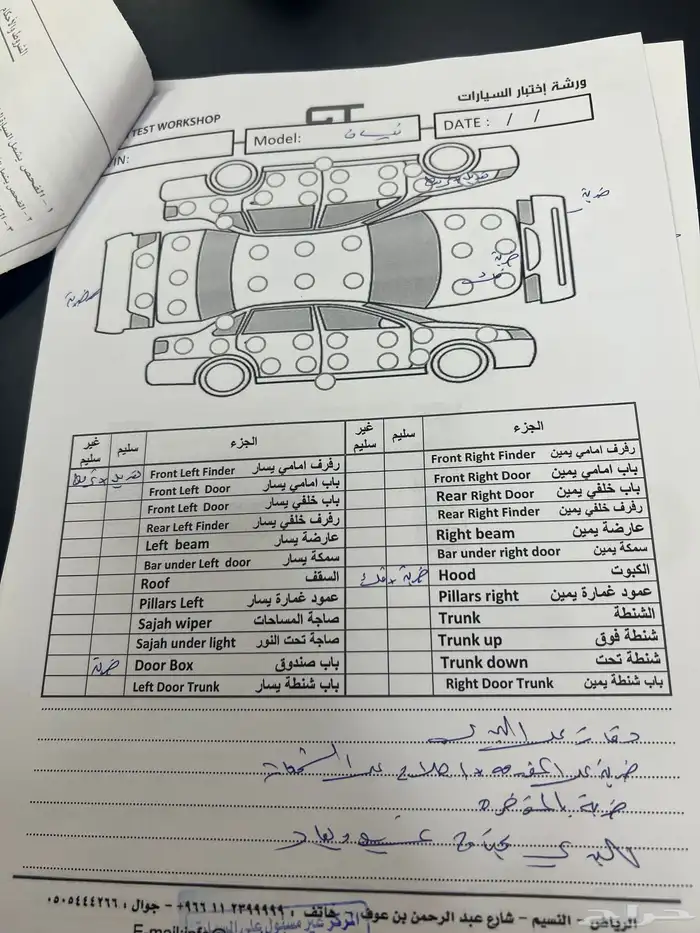 الشروط والأحكام
ورشة إختبار السيارات
TEST WORKSHOP
IN:
Model: نيسان
DATE : / /
ضربة
ضربة
ضربة
فك
غير سليم سليم الجزء غير سليم سليم الجزء
Front Left Finder رفرف امامي يسار
Front Right Finder رفرف امامي يمين
Front Left Door باب امامي يسار
Front Right Door باب امامي يمين
Front Left Door باب خلفي يسار
Rear Right Door باب خلفي يمين
Rear Left Finder رفرف خلفي يسار
Rear Right Finder رفرف خلفي يمين
Left beam عارضة يسار
Right beam عارضة يمين
Bar under Left door سمكة يسار
Bar under right door سمكة يمين
Roof السقف
ضربة + فك Hood الكبوت
Pillars Left عمود غمارة يسار
Pillars right عمود غمارة يمين
Sajah wiper صاجة المساحات
Trunk الشنطة
Sajah under light صاجة تحت النور
Trunk up شنطة فوق
ضربة Door Box باب صندوق
Trunk down شنطة تحت
Left Door Trunk باب شنطة يسار
Right Door Trunk باب شنطة يمين
دقات على البدي
ضربة بالمؤخره
الرياض - النسيم - شارع عبد الرحمن بن عوف - هاتف : +٩٦٦ ١١ ٢٣٩٩٩٩٩ - جوال : ٠٥٠٥٤٤٤٢٦٦
المركز غير مسئول على
حراج